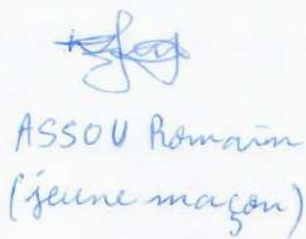 ASSOU Romain
(jeune maçon)